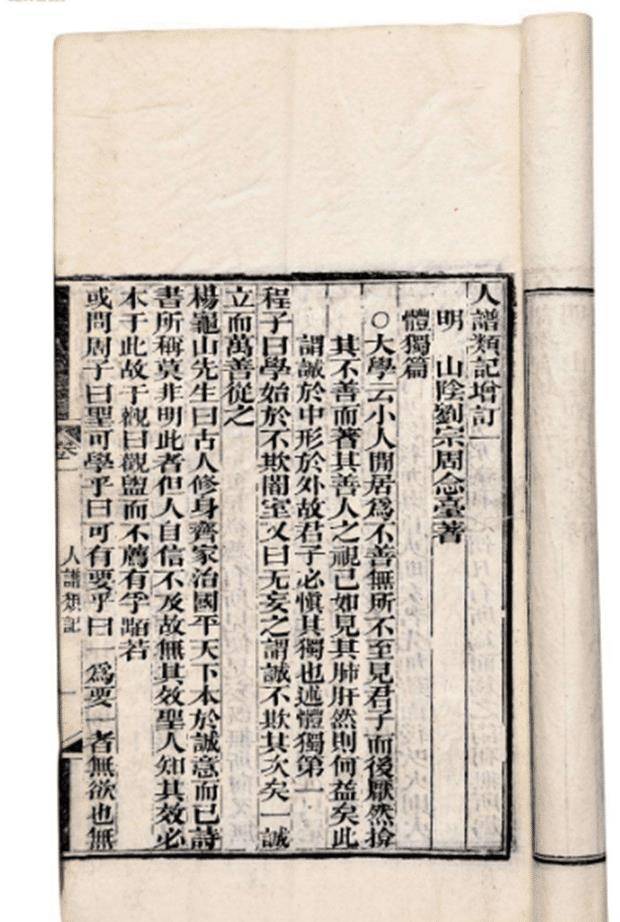 人譜類記增訂一
明 山陰劉宗周念臺著
體獨篇
○大學云小人閒居爲不善無所不至見君子而後厭然揜
其不善而著其善人之視己如見其肺肝然則何益矣此
謂誠於中形於外故君子必愼其獨也述體獨第一
程子曰學始於不欺闇室又曰无妄之謂誠不欺其次矣一誠
立而萬善從之
楊龜山先生曰古人修身齊家治國平天下本於誠意而已詩
書所稱莫非明此者但人自信不及故無其效聖人知其效必
本于此故于觀曰觀盥而不薦有孚顒若
或問周子曰聖可學乎曰可有要乎曰一爲要一者無欲也無
人譜類記
一